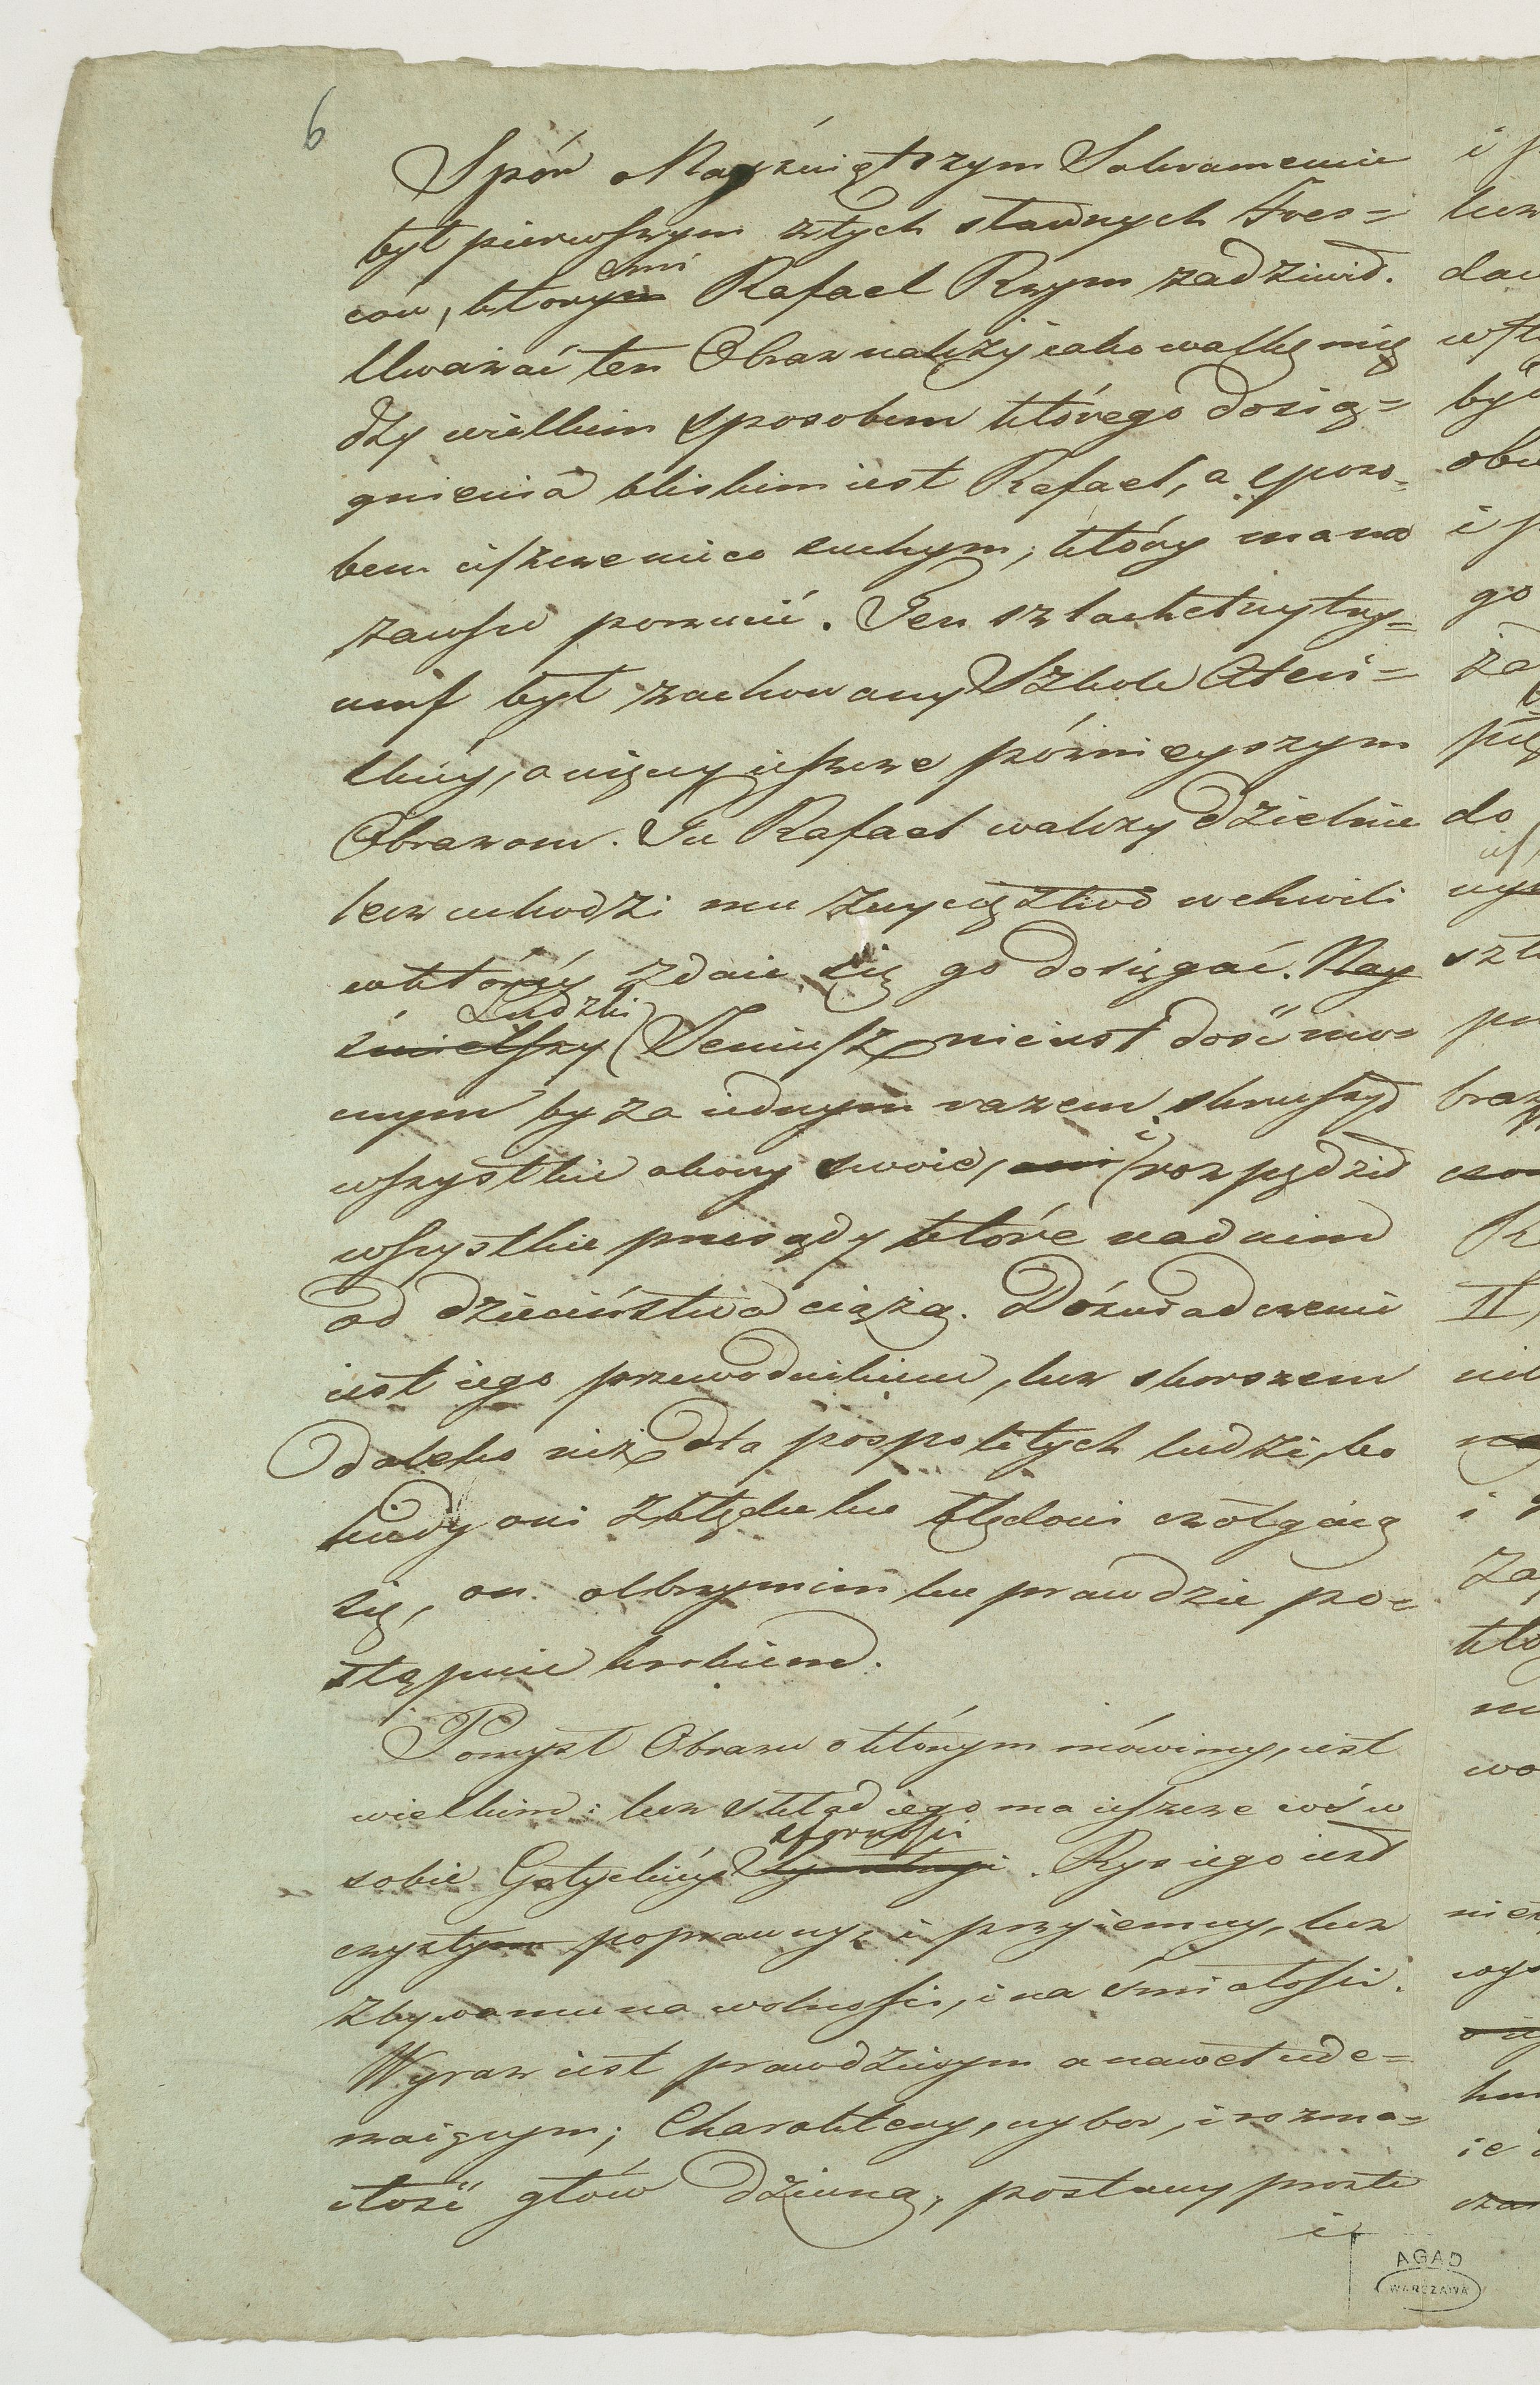 6
Spór o Nayświętszym Sakramencie
był pierwszym z tych sławnych Fres=
emi
ców, którym Rafael Rzym zadziwił.
Uważać ten Obraz należy iako walkę mię
dzy wielkim sposobem którego dosią=
gnienia bliskim iest Rafael, a sposo=
bem ieszcze nieco suchym, który ma na
zawsze porzucić. Ten szlachetny try=
umf był zachowany Szkole Ateń=
skiéy, a więcéy ieszcze póznieyszym
Obrazom. Tu Rafael walczy dzielnie
lecz uchodzi mu zwycięztwo w chwili
w któréy zdaie się go dosięgać. Nay
Ludzki
śmielszy Jeniusz nie iest dość moc=
nym by za iednym razem skruszył
wszystkie okowy swoie, ani i rozpędził
wszystkie przesądy które nad nim
od dzieciństwa ciążą. Doświadczenie
iest iego przewodnikiem, lecz skorszem
daleko niż dla pospolitych ludzi, bo
kiedy oni z błędu ku błędowi czołgaią
się, on olbrzymim ku prawdzie po=
stąpuie krokiem.
Pomysł Obrazu o którym mówimy, iest
wielkim: lecz układ iego ma ieszcze coś w
sobie Gotyckiéy
. Rys iego iest
czystym poprawny, i przyiemny, lecz
zbywa mu na wolności, i na śmiałości.
Wyraz iest prawdziwym a nawet ude=
rzaiącym; Charaktery, wybor, i rozma=
itość głów dziwną, postawy proste
i
AGAD
WARSZAWA